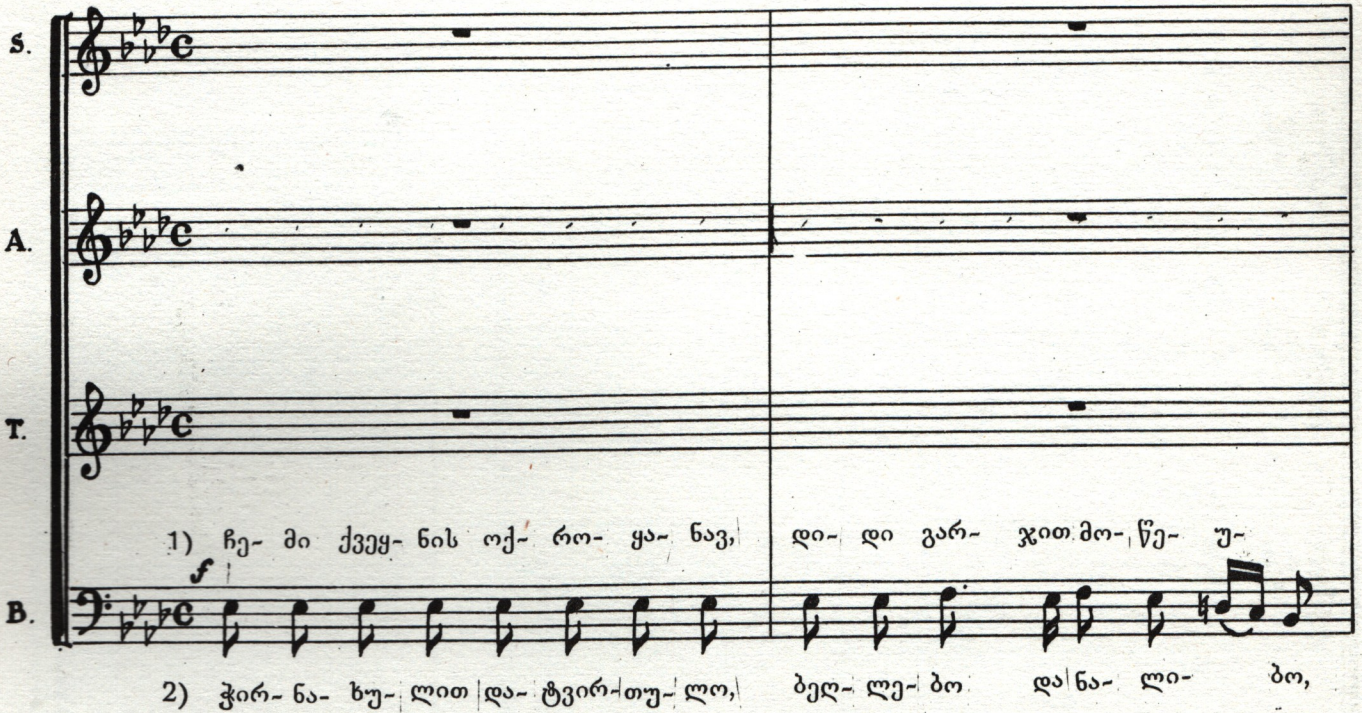 S.
A.
T.
1) ჩე- მი ქვეყ- ნის ოქ- რო- ყა- ნავ, დი- დი გარ- ჯით მო- წე- უ-
f
B.
2) ჭირ- ნა- ხუ- ლით და- ტვირ- თუ- ლო, ბეღ- ლე- ბო და ნა- ლი- ბო,